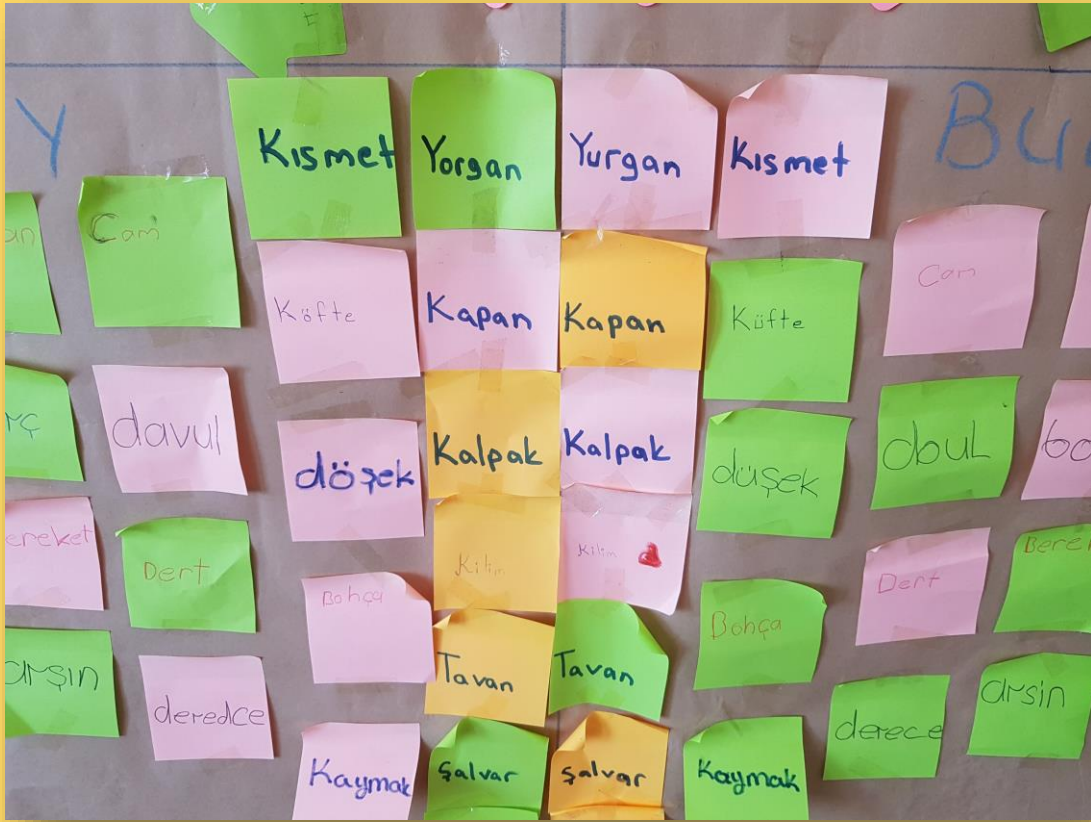 Y
BU
Kısmet
Yorgan
Yurgan
Kısmet
an
Cam
Köfte
Kapan
Kapan
Küfte
Cam
rç
davul
döşek
Kalpak
Kalpak
düşek
dbul
ba
ereket
Dert
Bohça
Kilim
Kilim
Bohça
Dert
Bere
arşın
deredce
Tavan
Tavan
derece
arsin
Kaymak
Şalvar
Şalvar
Kaymak